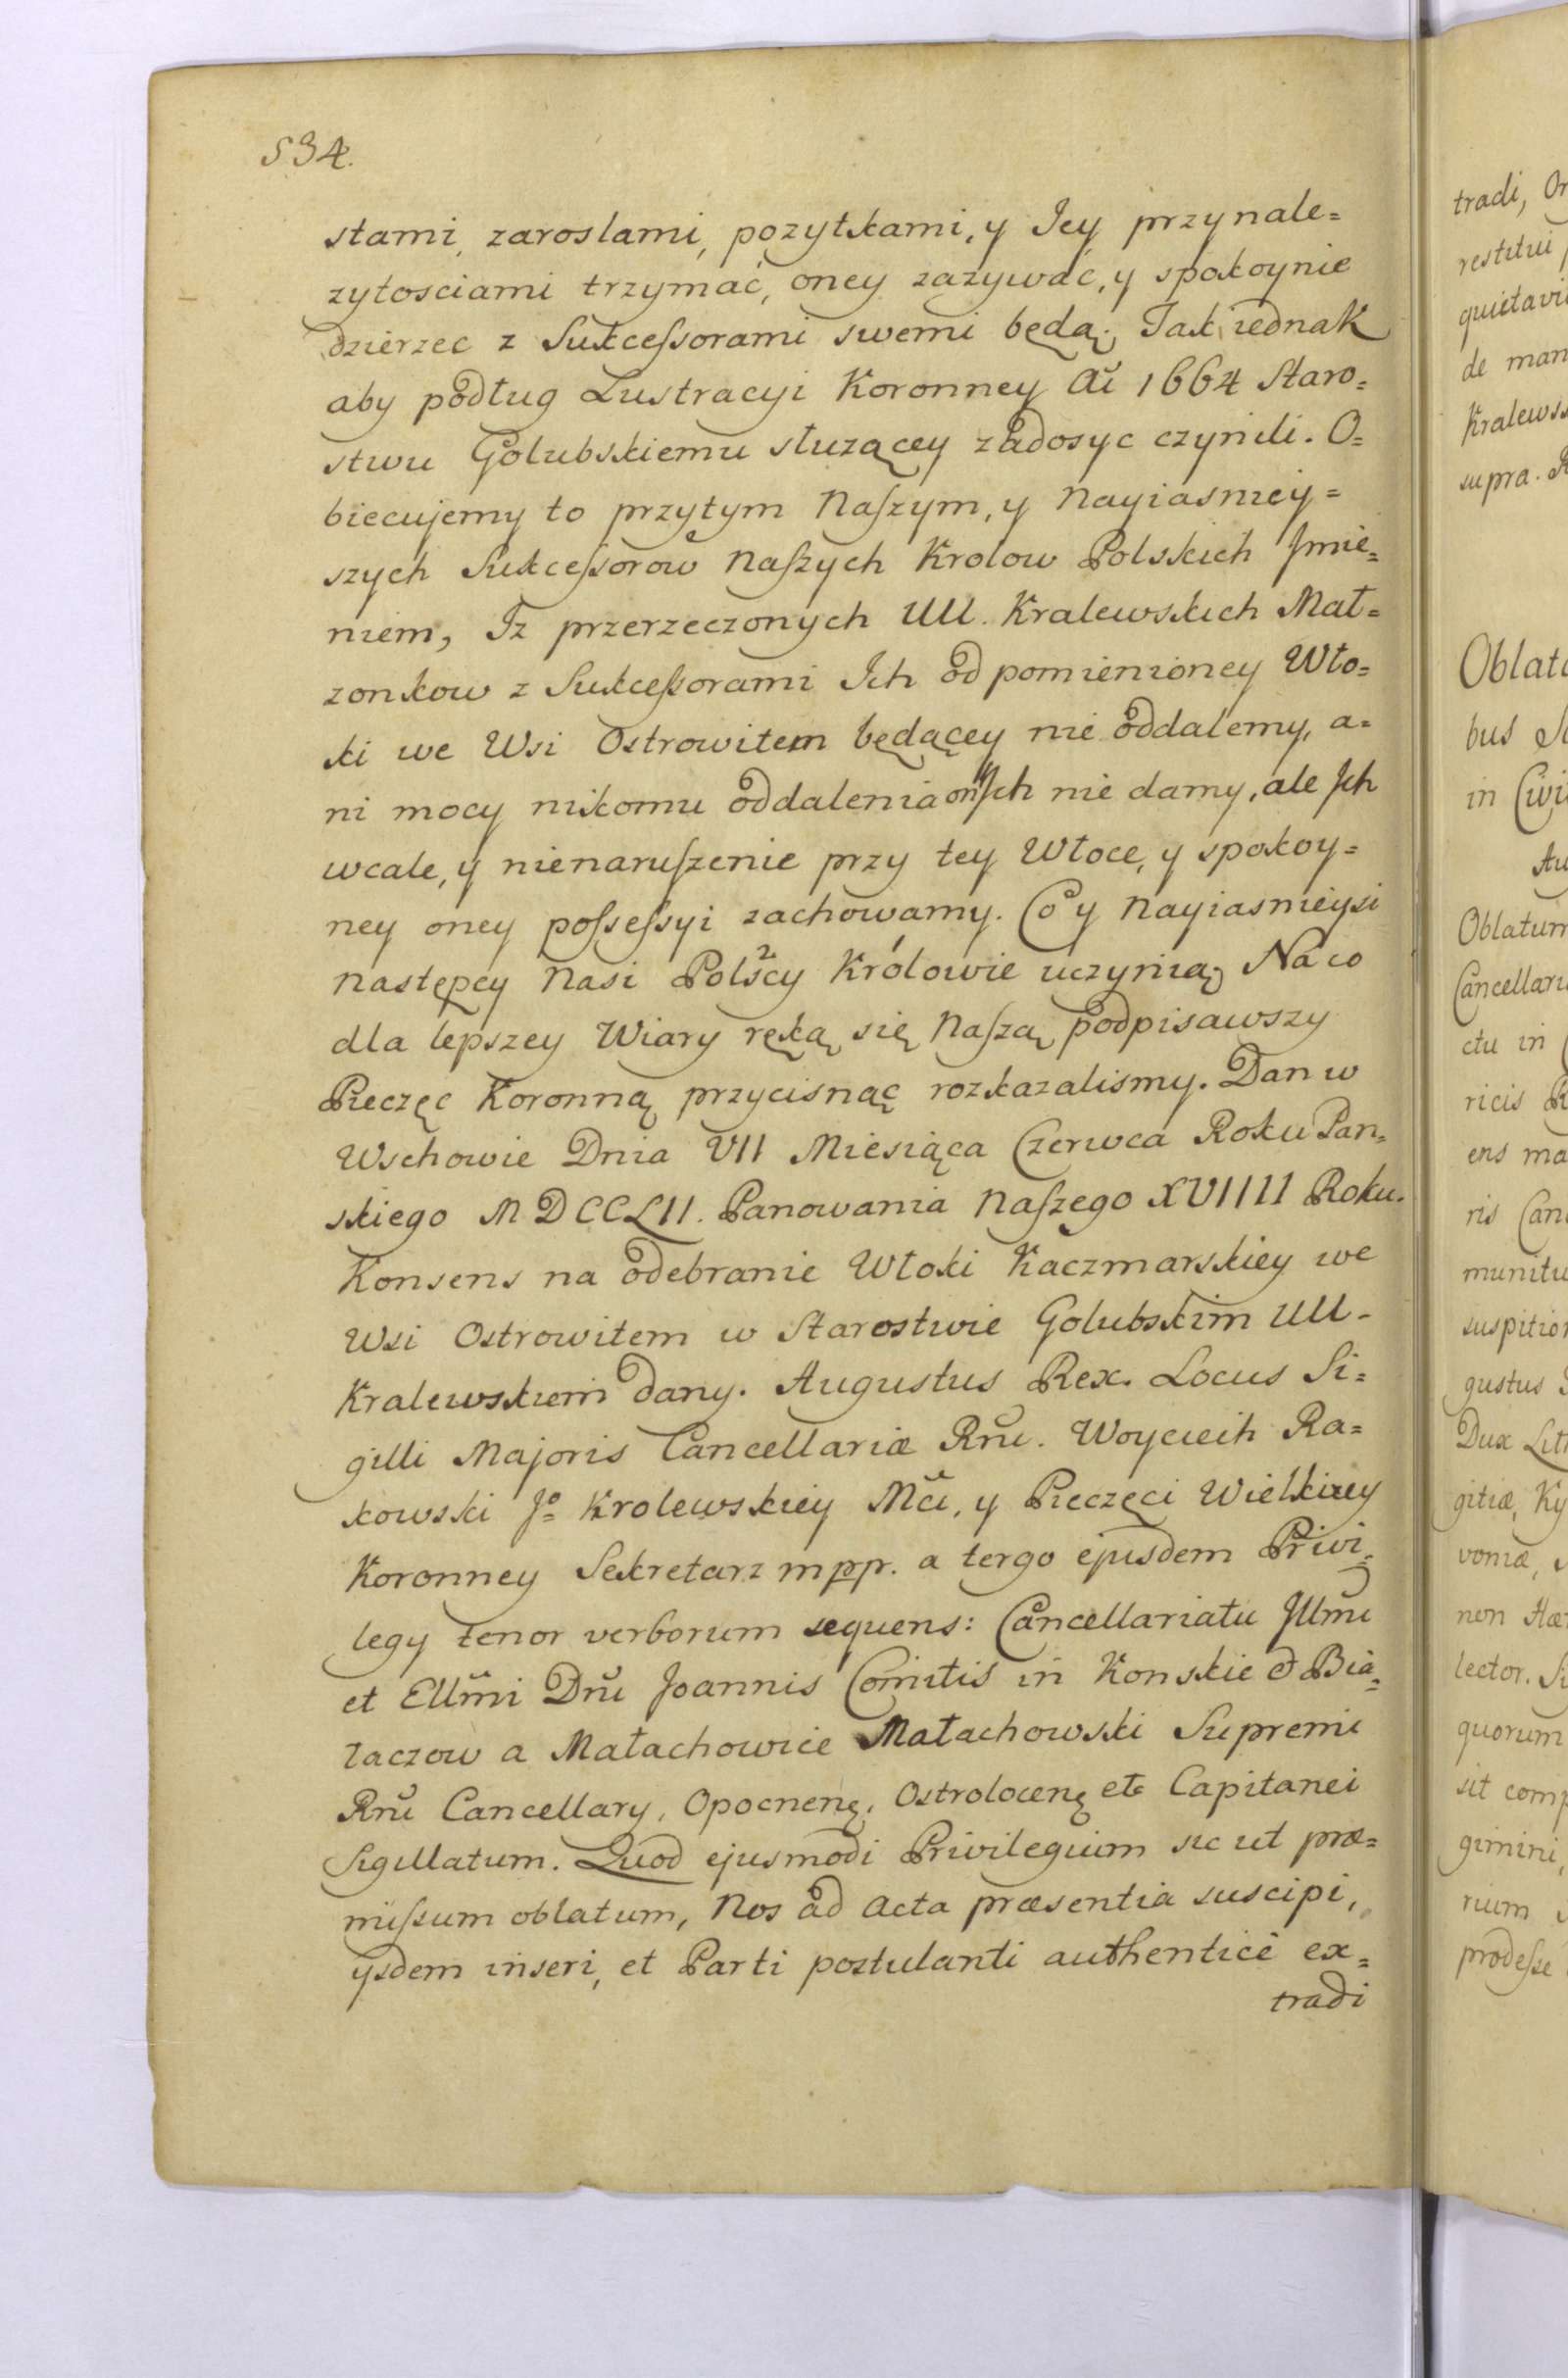 534.
stami, zaroslami, pozytkami, y Jey przynale=
zytosciami trzymać, oney zazywać, y spokoynie
dzierzec z Sukceſsorami swemi będą; Jak iednak
aby podług Lustracyi Koronney Ai 1664 Staro=
stwu Golubskiemu słuzącey zadosyc czynili. O=
biecujemy to przytym Naſzym, y Nayiasniey=
szych Sukceſsorow Naſzych Krolow Polskich Jmie=
niem, Iz przerzeczonych UU. Kralewskich Mał=
zonkow z Sukceſsorami Ich od pomienioney Wło=
ki we Wsi Ostrowitem będącey nie oddalemy, a=
ni mocy nikomu oddalenia onych nie damy, ale Jch
wcale, y nienaruſzenie przy tey Włoce, y spokoy=
ney oney poſseſsyi zachowamy. Co y Nayiasnieysi
Następcy Nasi Polscy Królowie uczynią; Na co
dla lepszey Wiary ręką się Naſzą podpisawszy
Pieczęc Koronną przycisnąc rozkazalismy. Dan w
Wschowie Dnia VII Miesiąca Czerwca Roku Pan=
skiego MDCCLII. Panowania Naſzego XVIIII Roku.
Konsens na odebranie Włoki Kaczmarskiey we
Wsi Ostrowitem w Starostwie Golubskim UU.
Kralewskiem dany. Augustus Rex. Locus Si=
gilli Majoris Cancellariæ Rni. Woyciech Ra=
kowski Jo= Krolewskiey Mci, y Pieczęci Wielkiey
Koronney Sekretarz mpp. a tergo ejusdem Privi=
legy tenor verborum sequens: Cancellariatu Jllmi
et Ellmi Dni Joannis Comitis in Konskie & Bia=
łaczow a Małachowice Małachowski Supremi
Rni Cancellary, Opocnenę, Ostrolocenę etc Capitanei
Sigillatum. Quod ejusmodi Privilegium sic ut præ=
miſsum oblatum, Nos ad Acta præsentia suscipi,
ysdem inseri, et Parti postulanti authenticè ex=
tradi
tradi, Or
restitui
quietavi
de man
Kralews
supra. R
Oblata
bus S
in Civi
Au
Oblatum
Cancellari
ctu in
ricis R
ens ma
ris Can
munitu
suspition
gustus
Dux Lit
gitiæ, Ky
voniæ,
non Hæ
lector. S
quorum
sit comp
gimini,
rium
prodeſse